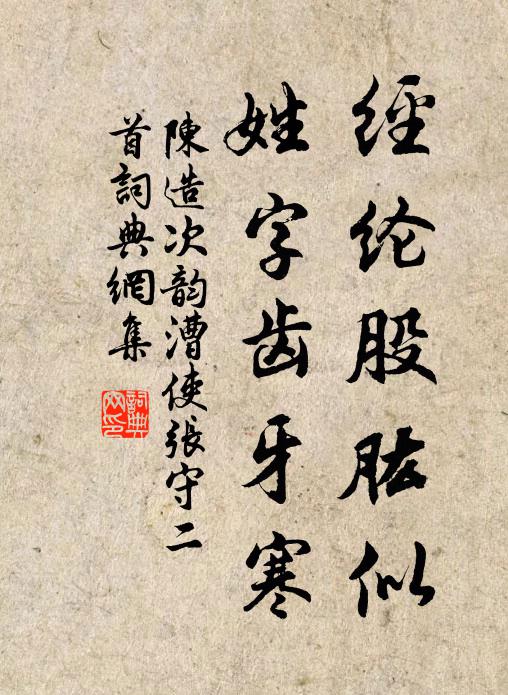 經纶股肱似
姓字齿牙寒
陳造次韵漕使張守二
首詞典網集
詞典
网印